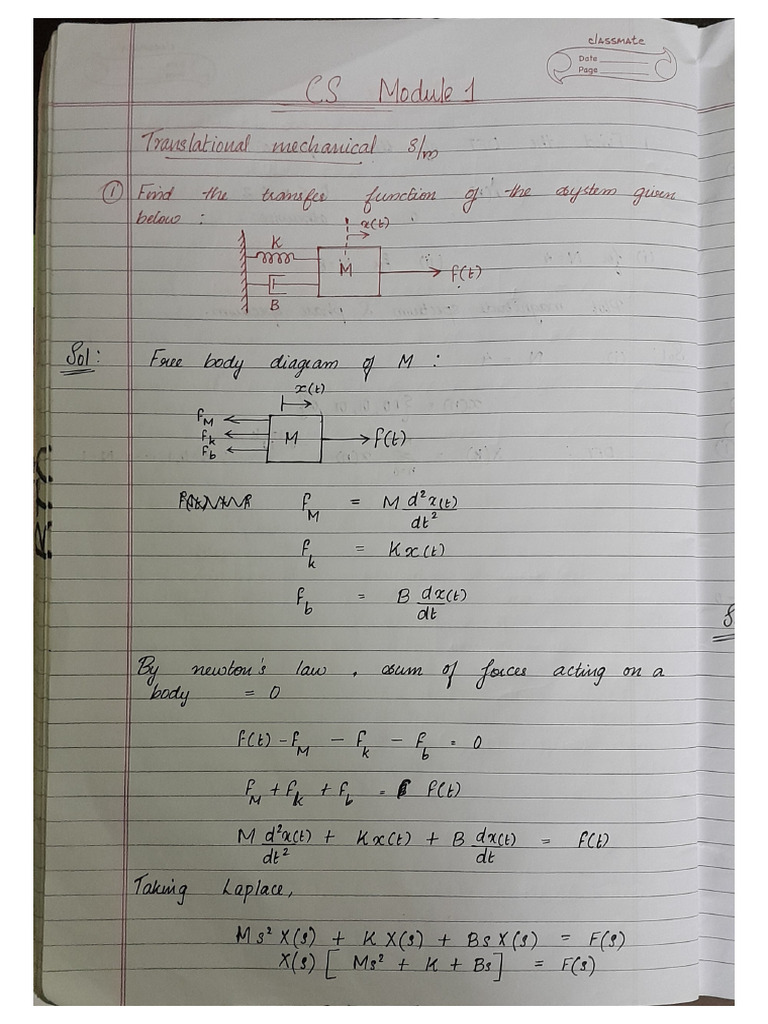 classmate
Date
Page
CS Module 1
Translational mechanical s/m
① Find the transfer function of the system given
below :
x(t)
K
M
f(t)
B
Sol : Free body diagram of M :
x(t)
f_M
f_k
f_b
M
f(t)
f_M = M d²x(t)/dt²
f_k = K x(t)
f_b = B dx(t)/dt
By newton's law , sum of forces acting on a
body = 0
f(t) - f_M - f_k - f_b = 0
f_M + f_k + f_b = f(t)
M d²x(t)/dt² + K x(t) + B dx(t)/dt = f(t)
Taking Laplace,
Ms² X(s) + K X(s) + Bs X(s) = F(s)
X(s) [ Ms² + K + Bs ] = F(s)